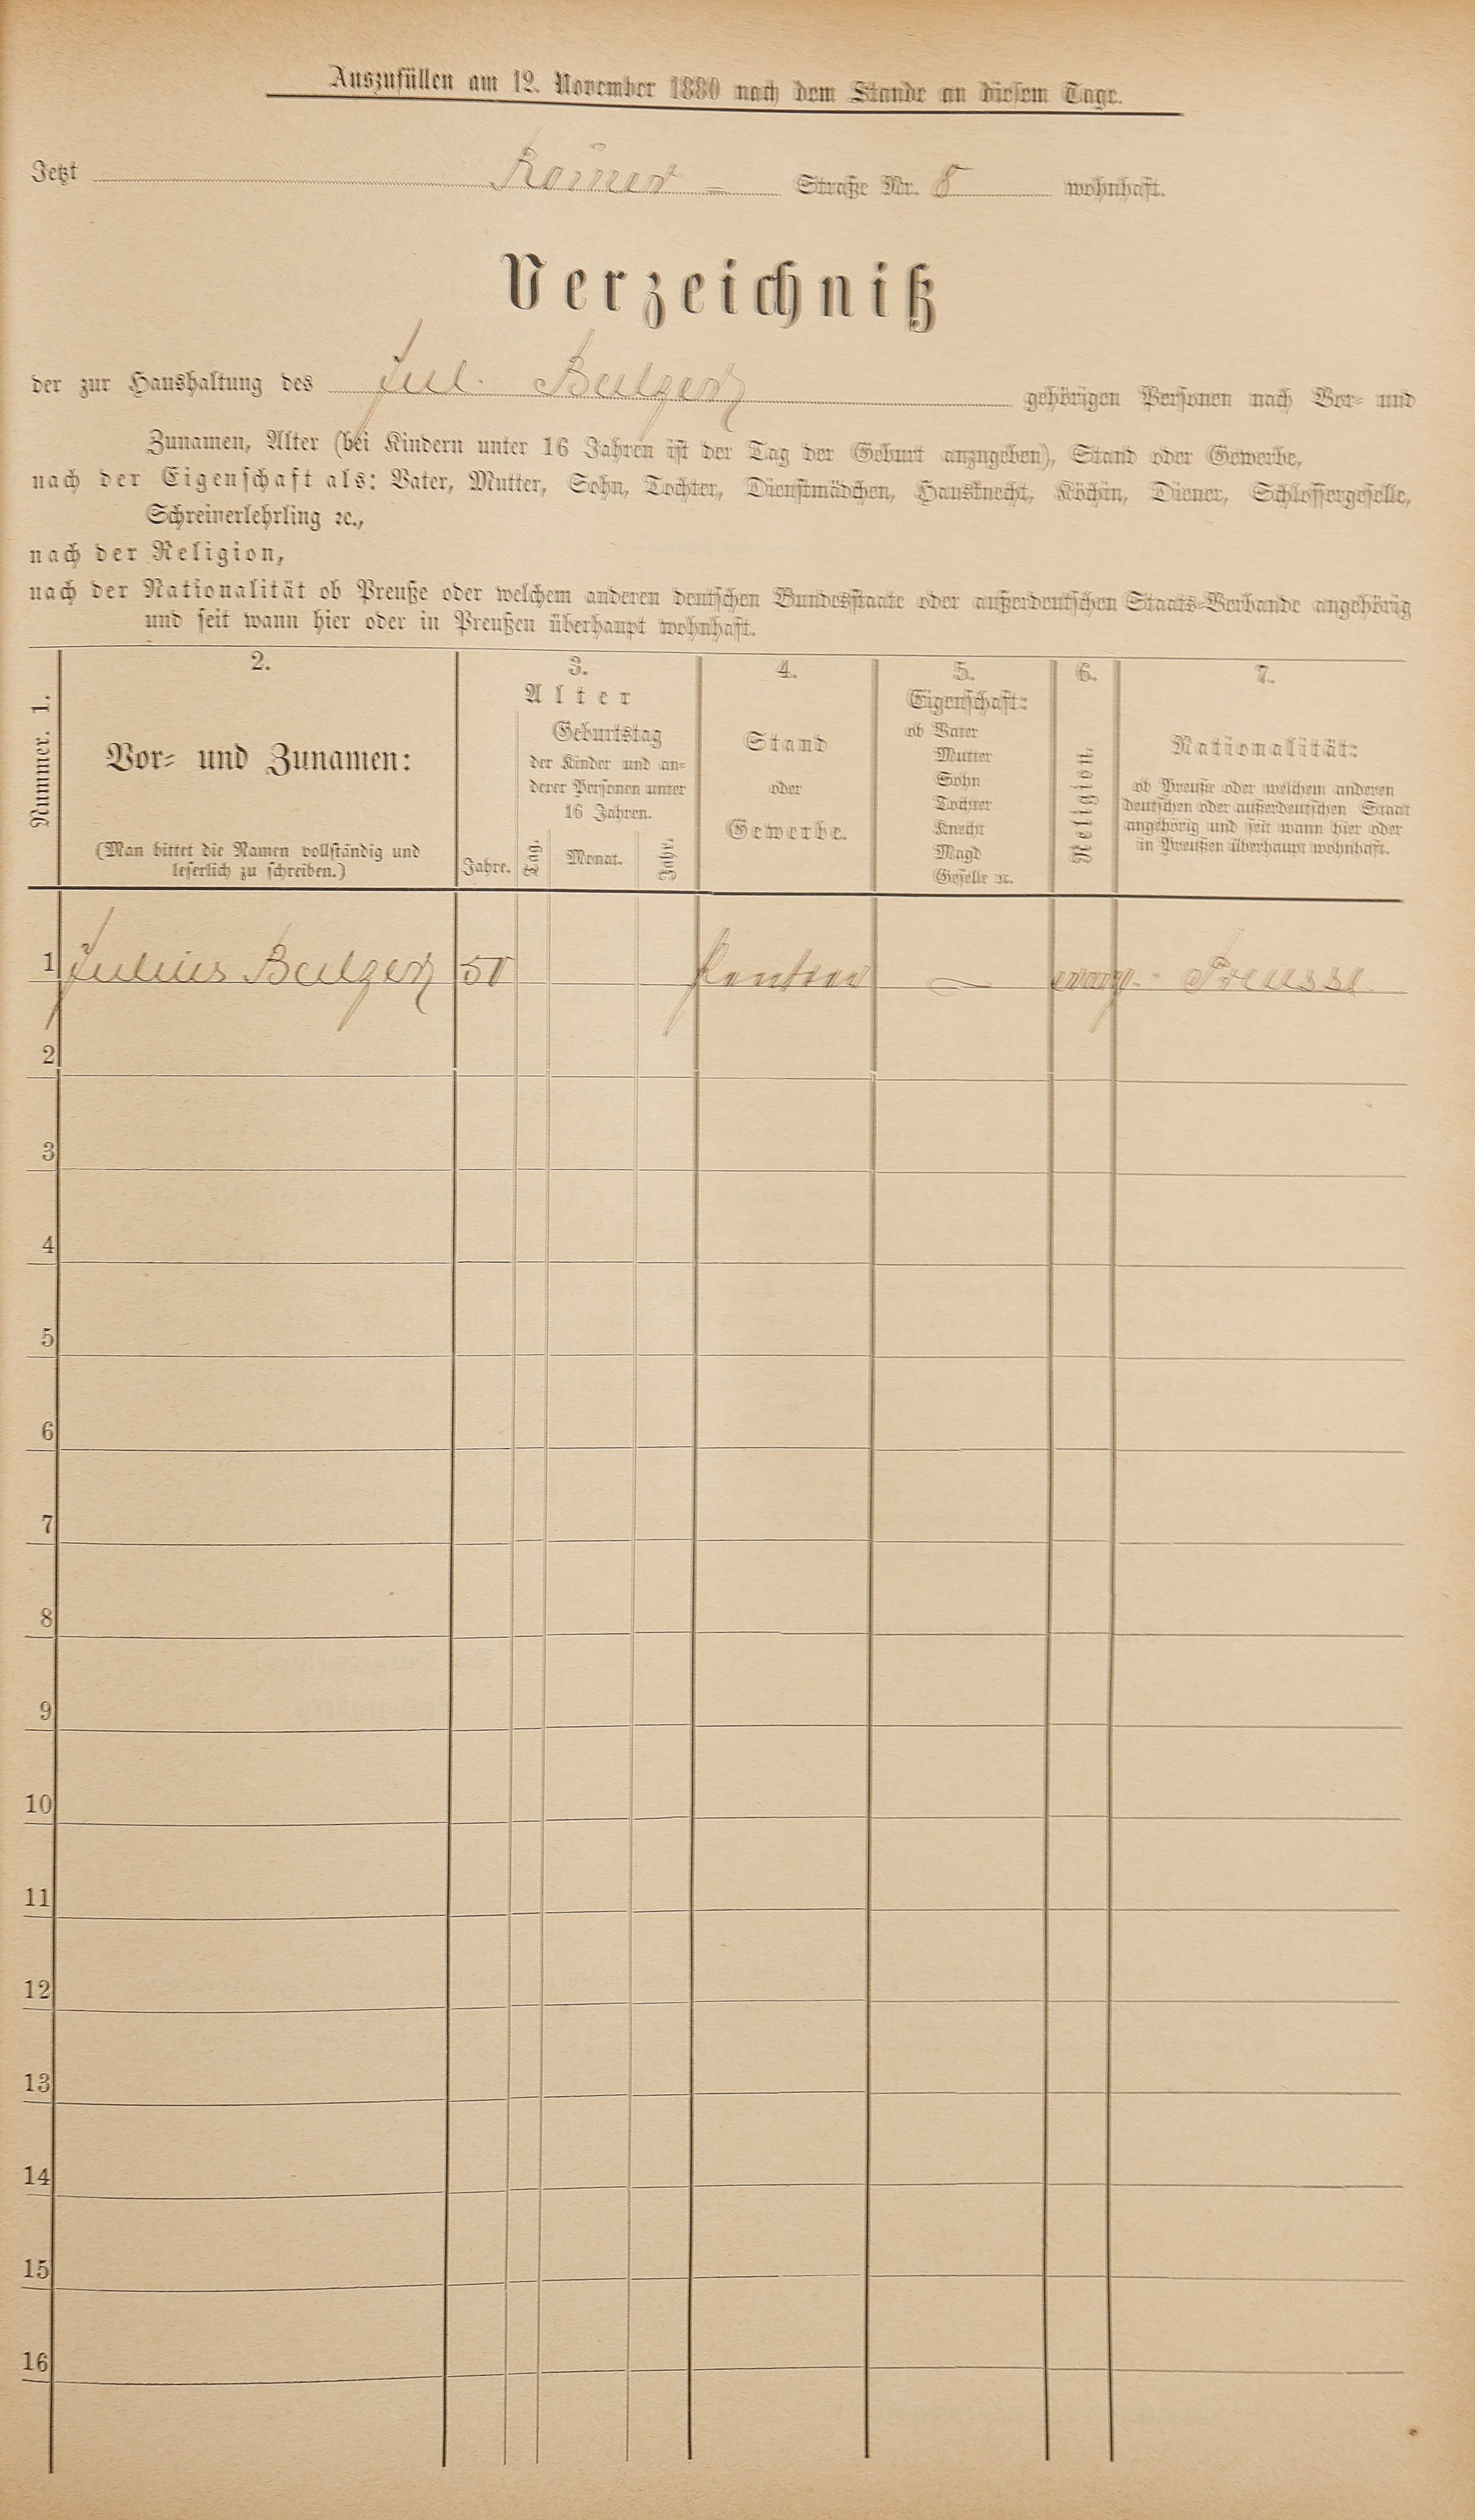 Auszufüllen am 12. November 1880 nach dem Stande an diesem Tage.
Jetzt Römer- Straße Nr. 8 wohnhaft.
Verzeichniß
der zur Haushaltung des Jul. gehörigen Personen nach Vor- und
Zunamen, Alter (bei Kindern unter 16 Jahren ist der Tag der Geburt anzugeben), Stand oder Gewerbe,
nach der Eigenschaft als: Vater, Mutter, Sohn, Tochter, Dienstmädchen, Hausknecht, Köchin, Diener, Schlossergeselle,
Schreinerlehrling ꝛc.,
nach der Religion,
nach der Nationalität ob Preuße oder welchem anderen deutschen Bundesstaate oder außerdeutschen Staats-Verbande angehörig
und seit wann hier oder in Preußen überhaupt wohnhaft.
Nummer. 1.
2.
Vor- und Zunamen:
(Man bittet die Namen vollständig und
leserlich zu schreiben.)
3.
Alter
Jahre.
Geburtstag
der Kinder und an-
derer Personen unter
16 Jahren.
Tag. Monat. Jahr.
4.
Stand
oder
Gewerbe.
5.
Eigenschaft:
ob Vater
Mutter
Sohn
Tochter
Knecht
Magd
Geselle ꝛc.
6.
Religion.
7.
Nationalität:
ob Preuße oder welchem anderen
deutschen oder außerdeutschen Staat
angehörig und seit wann hier oder
in Preußen überhaupt wohnhaft.
1 Julius Rentner — evang. Preusse
2
3
4
5
6
7
8
9
10
11
12
13
14
15
16